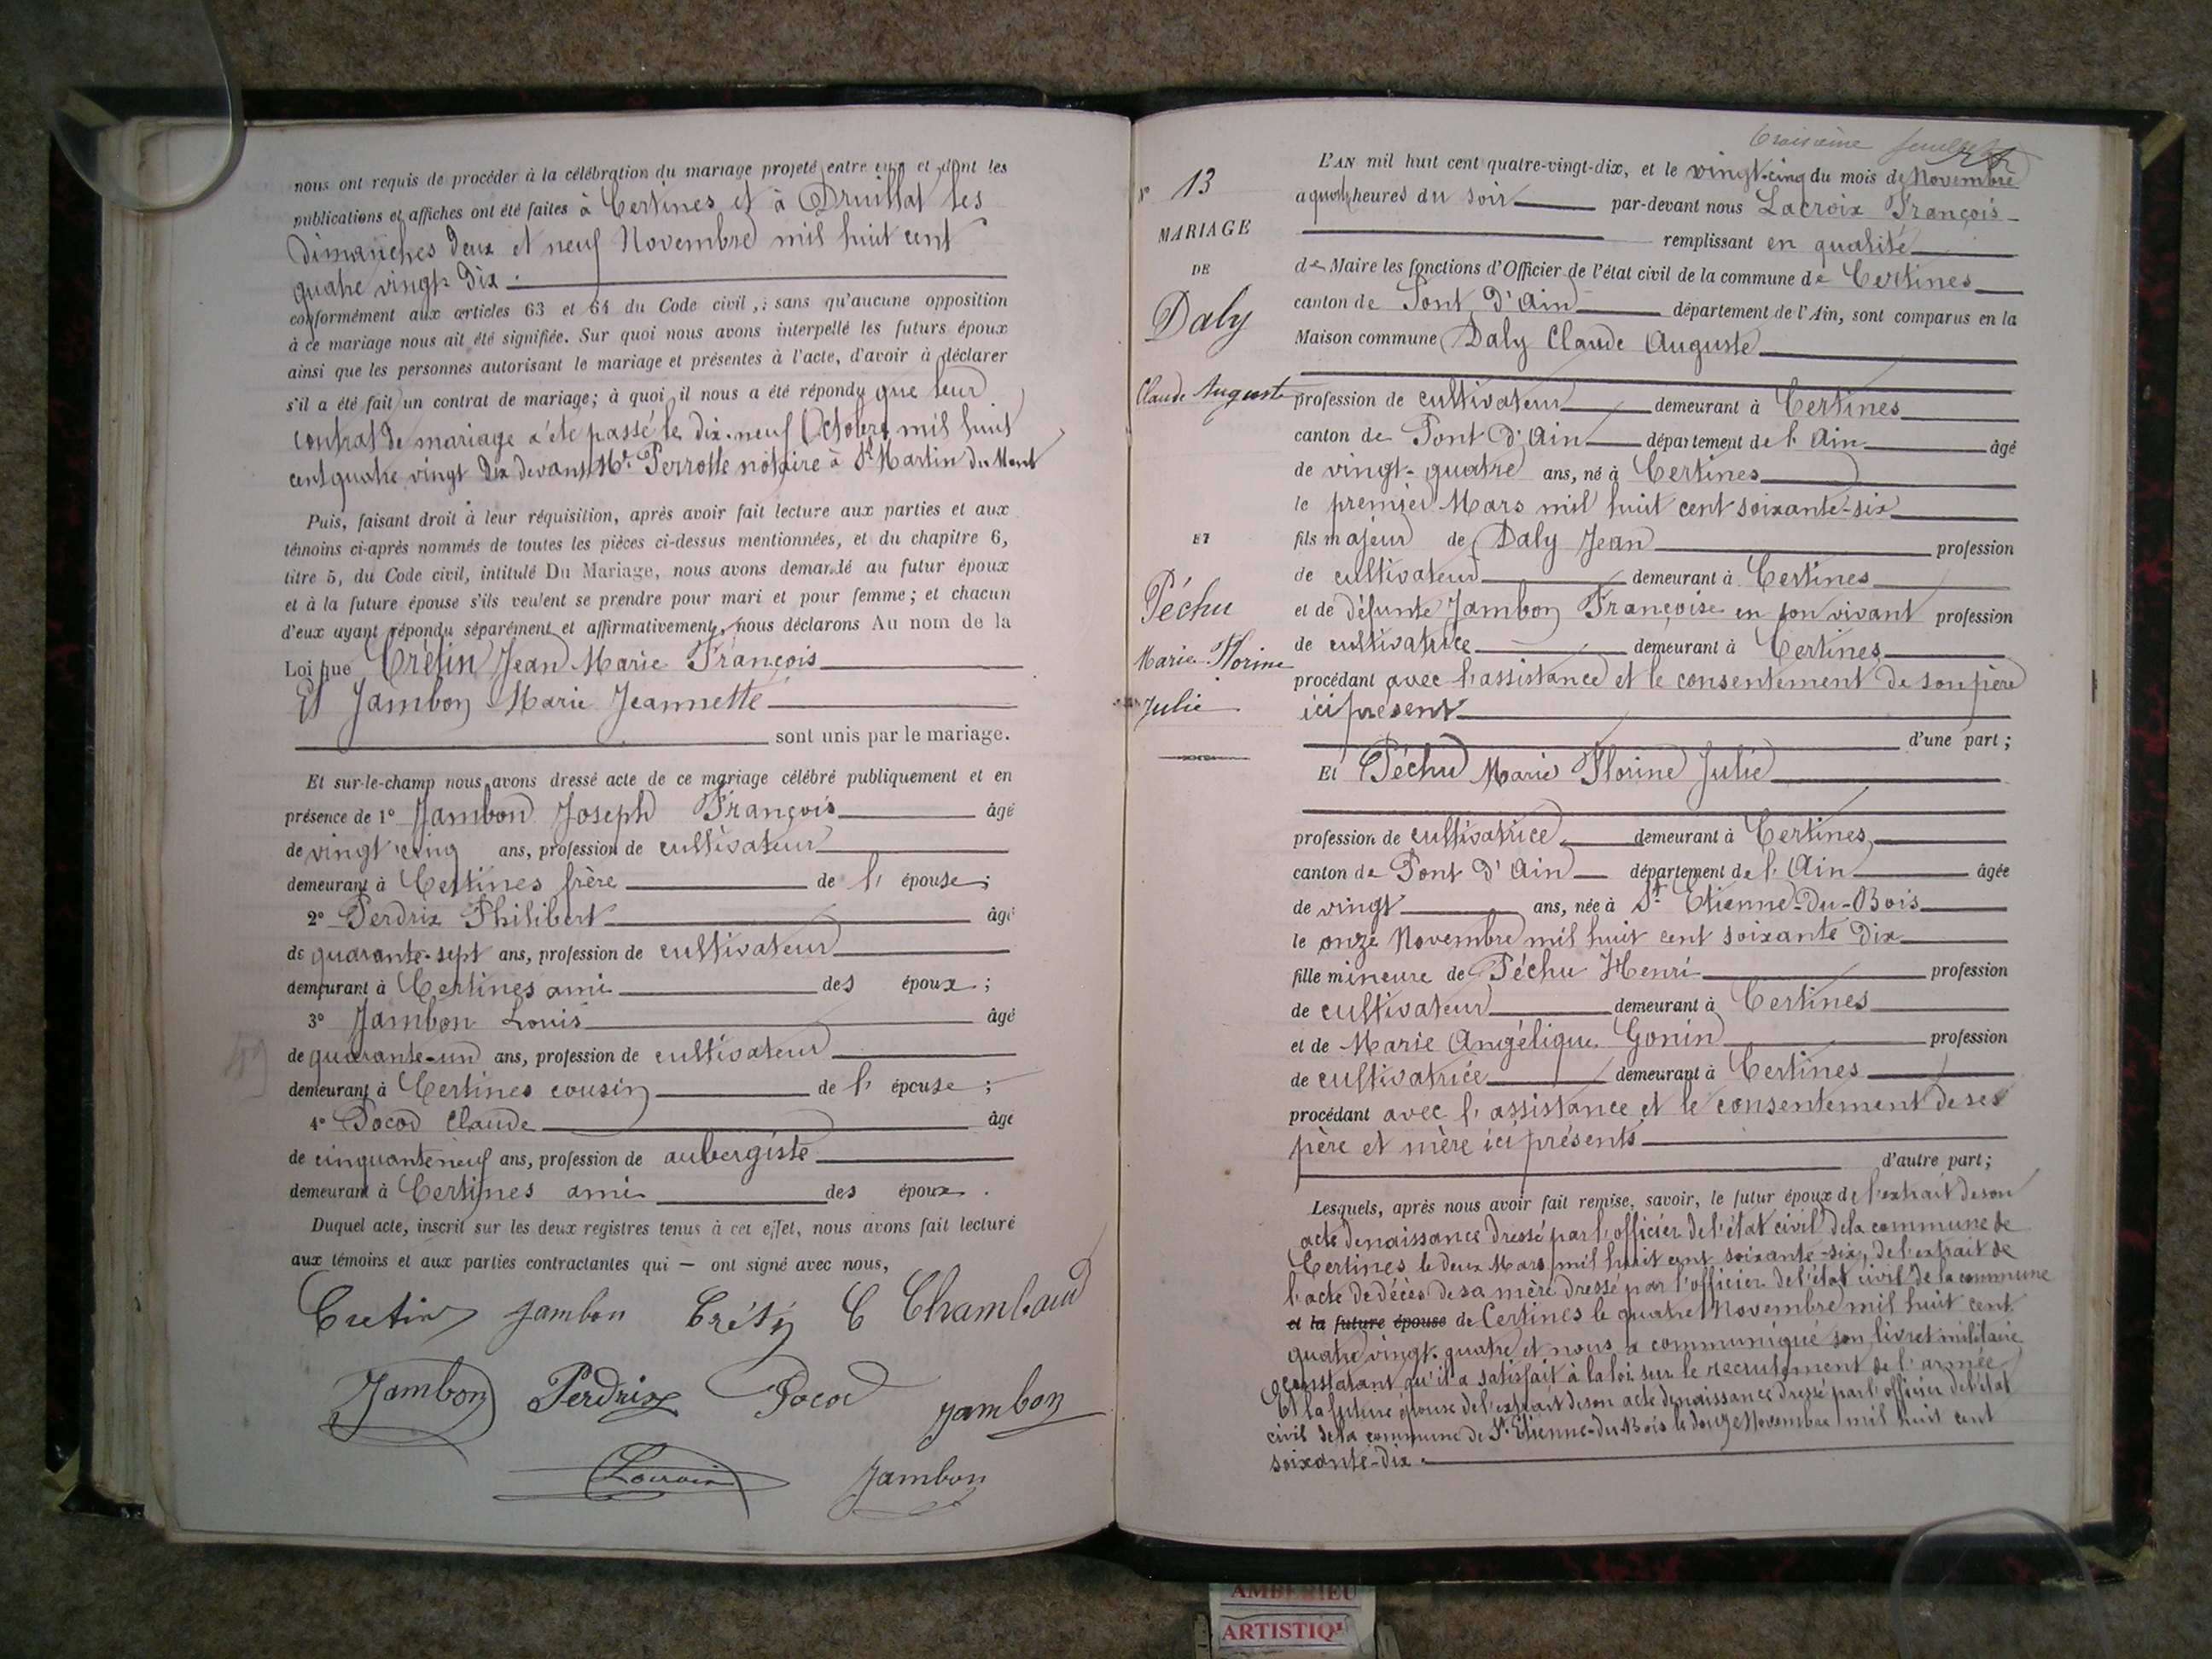 nous ont requis de procéder à la célébration du mariage projeté entre eux et dont les
publications et affiches ont été faites à Certines et à Druillat les
Dimanches deux et neuf Novembre mil huit cent
quatre vingt dix.
conformément aux articles 63 et 64 du Code civil, sans qu'aucune opposition
à ce mariage nous ait été signifiée. Sur quoi nous avons interpellé les futurs époux
ainsi que les personnes autorisant le mariage et présentes à l'acte, d'avoir à déclarer
s'il a été fait un contrat de mariage; à quoi il nous a été répondu que leur
contrat de mariage a été passé le dix-neuf Octobre mil huit
cent quatre vingt dix devant Me Perrotte notaire à St Martin du Mont
Puis, faisant droit à leur réquisition, après avoir fait lecture aux parties et aux
témoins ci-après nommés de toutes les pièces ci-dessus mentionnées, et du chapitre 6,
titre 5, du Code civil, intitulé Du Mariage, nous avons demandé au futur époux
et à la future épouse s'ils veulent se prendre pour mari et pour femme; et chacun
d'eux ayant répondu séparément et affirmativement, nous déclarons Au nom de la
Loi que Crétin Jean Marie François
Et Jambon Marie Jeannette
sont unis par le mariage.
Et sur-le-champ nous avons dressé acte de ce mariage célébré publiquement et en
présence de 1° Jambon Joseph François âgé
de vingt cinq ans, profession de cultivateur
demeurant à Certines frère de l'épouse;
2° Perdrix Philibert âgé
de quarante-sept ans, profession de cultivateur
demeurant à Certines ami des époux;
3° Jambon Louis âgé
de quarante-un ans, profession de cultivateur
demeurant à Certines cousin de l'épouse;
4° Pocod Claude âgé
de cinquante neuf ans, profession de aubergiste
demeurant à Certines ami des époux.
Duquel acte, inscrit sur les deux registres tenus à cet effet, nous avons fait lecture
aux témoins et aux parties contractantes qui — ont signé avec nous,
Cretin Jambon Crétin C Chambaud
Jambon Perdrix Pocod Jambon
Lacroix Jambon
troisième feuillet
N° 13
MARIAGE
DE
Daly
Claude Auguste
ET
Péchu
Marie Florine
Julie
L'AN mil huit cent quatre-vingt-dix, et le vingt-cinq du mois de Novembre
à quatre heures du soir par-devant nous Lacroix François
remplissant en qualité
de Maire les fonctions d'Officier de l'état civil de la commune de Certines
canton de Pont d'Ain département de l'Ain, sont comparus en la
Maison commune Daly Claude Auguste
profession de cultivateur demeurant à Certines
canton de Pont d'Ain département de l'Ain âgé
de vingt-quatre ans, né à Certines
le premier Mars mil huit cent soixante-six
fils majeur de Daly Jean profession
de cultivateur demeurant à Certines
et de défunte Jambon Françoise en son vivant profession
de cultivatrice demeurant à Certines
procédant avec l'assistance et le consentement de son père
ici présent
d'une part;
Et Péchu Marie Florine Julie
profession de cultivatrice demeurant à Certines
canton de Pont d'Ain département de l'Ain âgée
de vingt ans, née à St Etienne-du-Bois
le onze Novembre mil huit cent soixante dix
fille mineure de Péchu Henri profession
de cultivateur demeurant à Certines
et de Marie Angélique Gonin profession
de cultivatrice demeurant à Certines
procédant avec l'assistance et le consentement de ses
père et mère ici présents
d'autre part;
Lesquels, après nous avoir fait remise, savoir, le futur époux de l'extrait de son
acte de naissance dressé par l'officier de l'état civil de la commune de
Certines le deux Mars mil huit cent soixante-six, de l'extrait de
l'acte de décès de sa mère dressé par l'officier de l'état civil de la commune
et la future épouse de Certines le quatre Novembre mil huit cent
quatre vingt-quatre et nous a communiqué son livret militaire
constatant qu'il a satisfait à la loi sur le recrutement de l'armée
Et la future épouse de l'extrait de son acte de naissance dressé par l'officier de l'état
civil de la commune de St Etienne-du-Bois le douze Novembre mil huit cent
soixante-dix.
AMBERIEU
ARTISTIQ